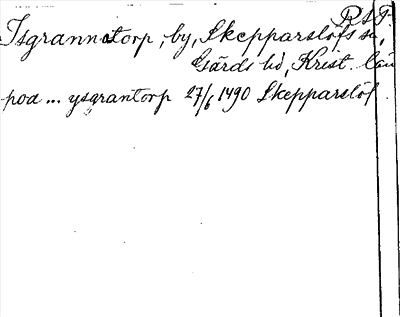 R S T.
Isgrannatorp, by, Skepparslöfs sn,
Gärds hd, Krist. län
poa ... ysgrantorp 27/6 1490 Skepparslöf.